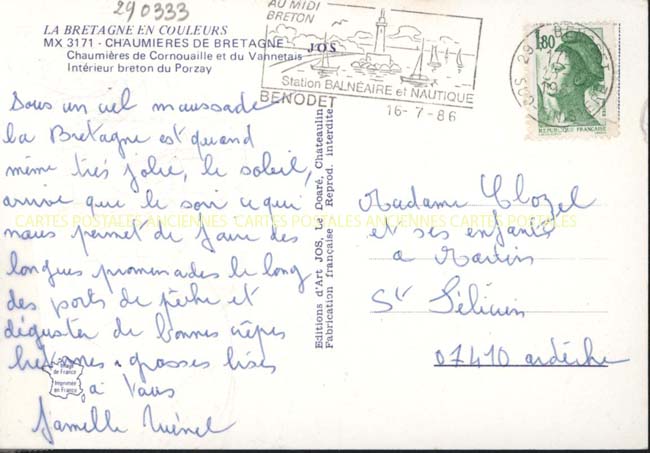 290333
LA BRETAGNE EN COULEURS
MX 3171 - CHAUMIERES DE BRETAGNE
Chaumières de Cornouaille et du Vannetais
Intérieur breton du Porzay
JOS
AU MIDI
BRETON
Station BALNÉAIRE et NAUTIQUE
BENODET
16-7-86
1,80
REPUBLIQUE FRANÇAISE
Sous un ciel maussade
la Bretagne est quand
même très jolie, le soleil,
arrive que le soir ce qui
nous permet de faire des
longues promenades le long
des ports de pêche et
déguster de bonnes crêpes
bretonnes. grosses bises
à Vous
famille
Editions d'Art JOS, Le Doaré, Châteaulin
Fabrication française - Reprod. interdite
Madame Clozel
et ses enfants
à Martin
St Félicien
07410 ardèche
Image
de France
Imprimée
en France
CARTES POSTALES ANCIENNES CARTES POSTALES ANCIENNES CARTES POSTALES